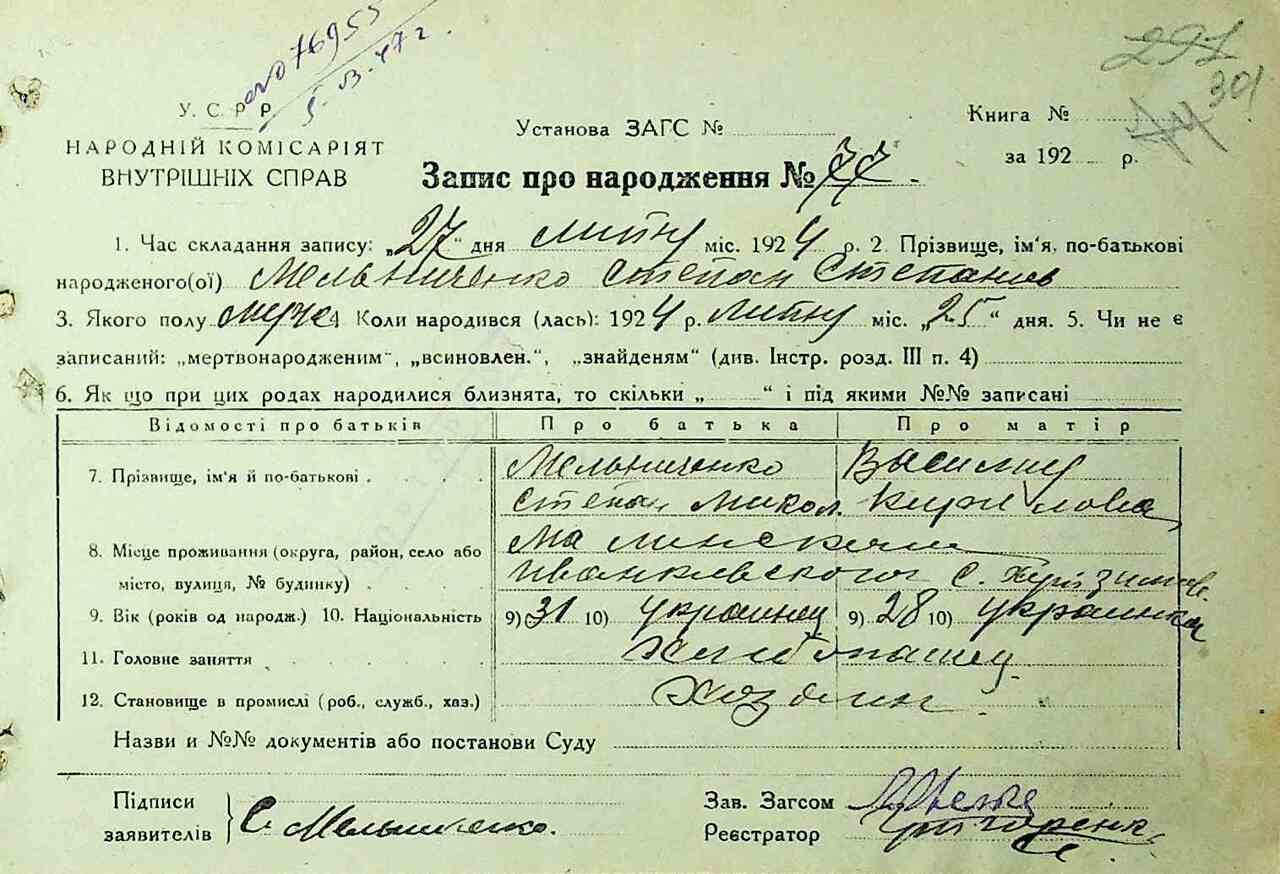 076955
297
301
У. С. Р. Р.
НАРОДНІЙ КОМІСАРІЯТ
ВНУТРІШНІХ СПРАВ
Установа ЗАГС №
Книга №
за 192 р.
Запис про народження № 77
1. Час складання запису: „27“ дня липну міс. 1924 р. 2. Прізвище, ім'я, по-батькові
народженого(ої) Мельниченко Степан Степанов
3. Якого полу муже 4 Коли народився (лась): 1924 р. липну міс. „25“ дня. 5. Чи не є
записаний: „мертвонародженим“, „всиновлен.“, „знайденям“ (див. Інстр. розд. III п. 4)
6. Як що при цих родах народилися близнята, то скільки „ “ і під якими №№ записані
Відомості про батьків Про батька Про матір
7. Прізвище, ім'я й по-батькові Мельниченко Василину
Степан Микол. Кирилова
8. Місце проживання (округа, район, село або Малинскоми
місто, вулиця, № будинку) Иванкивского с.
9. Вік (років од народж.) 10. Національність 9) 31 10) украинец 9) 28 10) украинка
11. Головне заняття Хлибопашец
12. Становище в промислі (роб., служб., хаз.) Хозяин.
Назви и №№ документів або постанови Суду
Підписи
заявителів С. Мельниченко.
Зав. Загсом
Реєстратор Григоренк